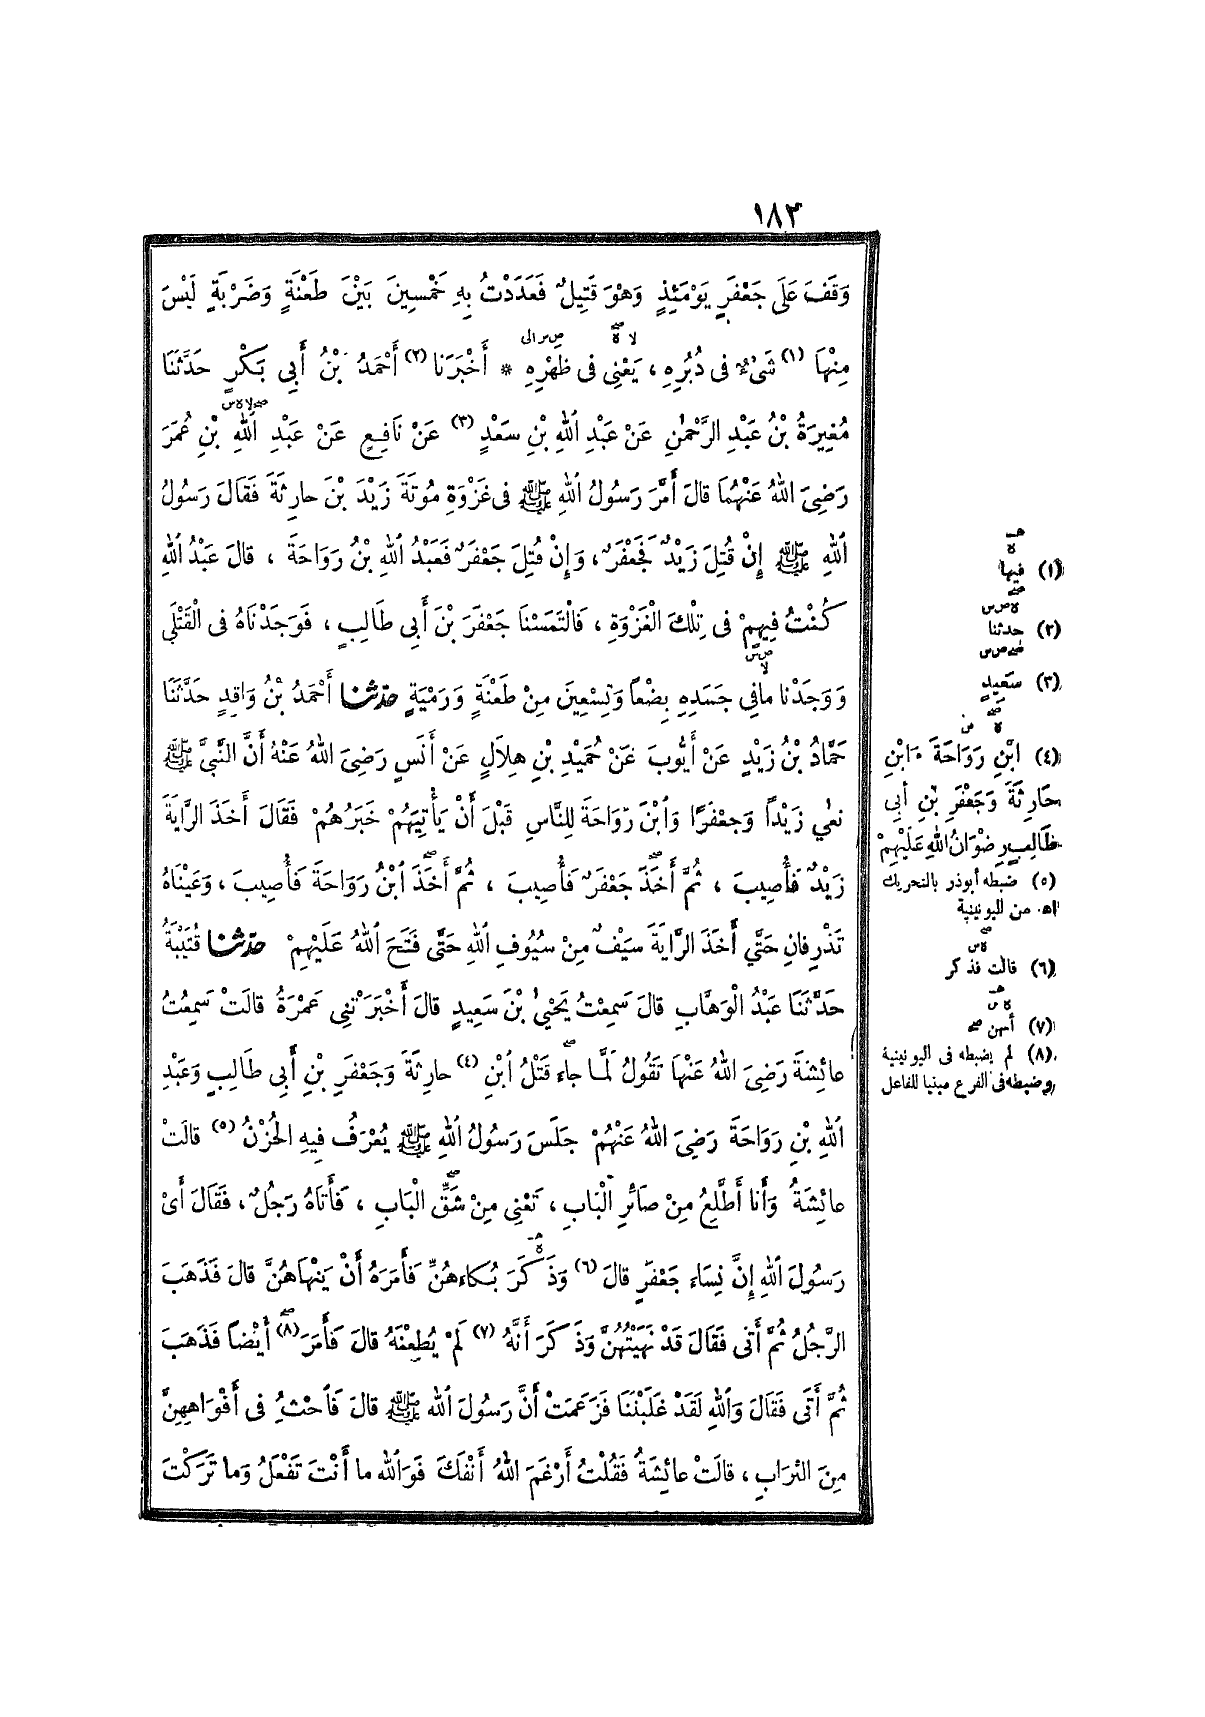 ١٨٢
وَقَفَ عَلَى جَعْفَرٍ يَوْمَئِذٍ وَهْوَ قَتِيلٌ فَعَدَدْتُ بِهِ خَمْسِينَ بَيْنَ طَعْنَةٍ وَضَرْبَةٍ لَيْسَ
مِنْهَا (١) شَىْءٌ فِى دُبُرِهِ ، يَعْنِى فِى ظَهْرِهِ * أَخْبَرَنَا (٢) أَحْمَدُ بْنُ أَبِى بَكْرٍ حَدَّثَنَا
مُغِيرَةُ بْنُ عَبْدِ الرَّحْمٰنِ عَنْ عَبْدِ اللهِ بْنِ سَعْدٍ (٣) عَنْ نَافِعٍ عَنْ عَبْدِ اللهِ بْنِ عُمَرَ
رَضِىَ اللهُ عَنْهُمَا قالَ أَمَّرَ رَسُولُ اللهِ ﷺ فِى غَزْوَةِ مُوتَةَ زَيْدَ بْنَ حارِثَةَ فَقَالَ رَسُولُ
اللهِ ﷺ إِنْ قُتِلَ زَيْدٌ فَجَعْفَرٌ ، وَإِنْ قُتِلَ جَعْفَرٌ فَعَبْدُ اللهِ بْنُ رَوَاحَةَ ، قالَ عَبْدُ اللهِ
كُنْتُ فِيهِمْ فِى تِلْكَ الْغَزْوَةِ ، فَالْتَمَسْنَا جَعْفَرَ بْنَ أَبِى طَالِبٍ ، فَوَجَدْنَاهُ فِى الْقَتْلَى
وَوَجَدْنا مافِى جَسَدِهِ بِضْعًا وَتِسْعِينَ مِنْ طَعْنَةٍ وَرَمْيَةٍ حَدَّثَنَا أَحْمَدُ بْنُ وَاقِدٍ حَدَّثَنَا
حَمَّادُ بْنُ زَيْدٍ عَنْ أَيُّوبَ عَنْ حُمَيْدِ بْنِ هِلَالٍ عَنْ أَنَسٍ رَضِىَ اللهُ عَنْهُ أَنَّ النَّبِىَّ ﷺ
نَعٰى زَيْدًا وَجَعْفَرًا وَابْنَ رَوَاحَةَ لِلنَّاسِ قَبْلَ أَنْ يَأْتِيَهُمْ خَبَرُهُمْ فَقَالَ أَخَذَ الرَّايَةَ
زَيْدٌ فَأُصِيبَ ، ثُمَّ أَخَذَ جَعْفَرٌ فَأُصِيبَ ، ثُمَّ أَخَذَ ابْنُ رَوَاحَةَ فَأُصِيبَ ، وَعَيْنَاهُ
تَذْرِفانِ حَتَّى أَخَذَ الرَّايَةَ سَيْفٌ مِنْ سُيُوفِ اللهِ حَتَّى فَتَحَ اللهُ عَلَيْهِمْ حَدَّثَنَا قُتَيْبَةُ
حَدَّثَنَا عَبْدُ الْوَهَّابِ قالَ سَمِعْتُ يَحْيٰى بْنَ سَعِيدٍ قالَ أَخْبَرَتْنِى عَمْرَةُ قالَتْ سَمِعْتُ
عائِشَةَ رَضِىَ اللهُ عَنْهَا تَقُولُ لَمَّا جاءَ قَتْلُ ابْنِ (٤) حارِثَةَ وَجَعْفَرِ بْنِ أَبِى طَالِبٍ وَعَبْدِ
اللهِ بْنِ رَوَاحَةَ رَضِىَ اللهُ عَنْهُمْ جَلَسَ رَسُولُ اللهِ ﷺ يُعْرَفُ فِيهِ الحُزْنُ (٥) قالَتْ
عائِشَةُ وَأَنا أَطَّلِعُ مِنْ صَائِرِ الْبَابِ ، تَعْنِى مِنْ شَقِّ الْبَابِ ، فَأَتَاهُ رَجُلٌ ، فَقَالَ أَىْ
رَسُولَ اللهِ إِنَّ نِسَاءَ جَعْفَرٍ قالَ (٦) وَذَكَرَ بُكاءَهُنَّ فَأَمَرَهُ أَنْ يَنْهَاهُنَّ قالَ فَذَهَبَ
الرَّجُلُ ثُمَّ أَتَى فَقَالَ قَدْ نَهَيْتُهُنَّ وَذَكَرَ أَنَّهُ (٧) لَمْ يُطِعْنَهُ قالَ فَأَمَرَ (٨) أَيْضًا فَذَهَبَ
ثُمَّ أَتَى فَقَالَ وَاللهِ لَقَدْ غَلَبْنَنَا فَزَعَمَتْ أَنَّ رَسُولَ اللهِ ﷺ قالَ فَاحْثُ فِى أَفْوَاهِهِنَّ
مِنَ التُّرَابِ ، قالَتْ عائِشَةُ فَقُلْتُ أَرْغَمَ اللهُ أَنْفَكَ فَوَاللهِ ما أَنْتَ تَفْعَلُ وَما تَرَكْتَ
(١) فيها
(٢) حدثنا
(٣) سَعِيدٍ
(٤) ابْنِ رَوَاحَةَ وَابْنِ
حَارِثَةَ وَجَعْفَرِ بْنِ أبِى
طَالِبٍ رِضْوَانُ اللهِ عَلَيْهِمْ
(٥) ضبطه أبوذر بالتحريك
اه‍ من اليونينية
(٦) قالت فذكر
(٧) أنهن
(٨) لم يضبطه فى اليونينية
وضبطه فى الفرع مبنيا للفاعل